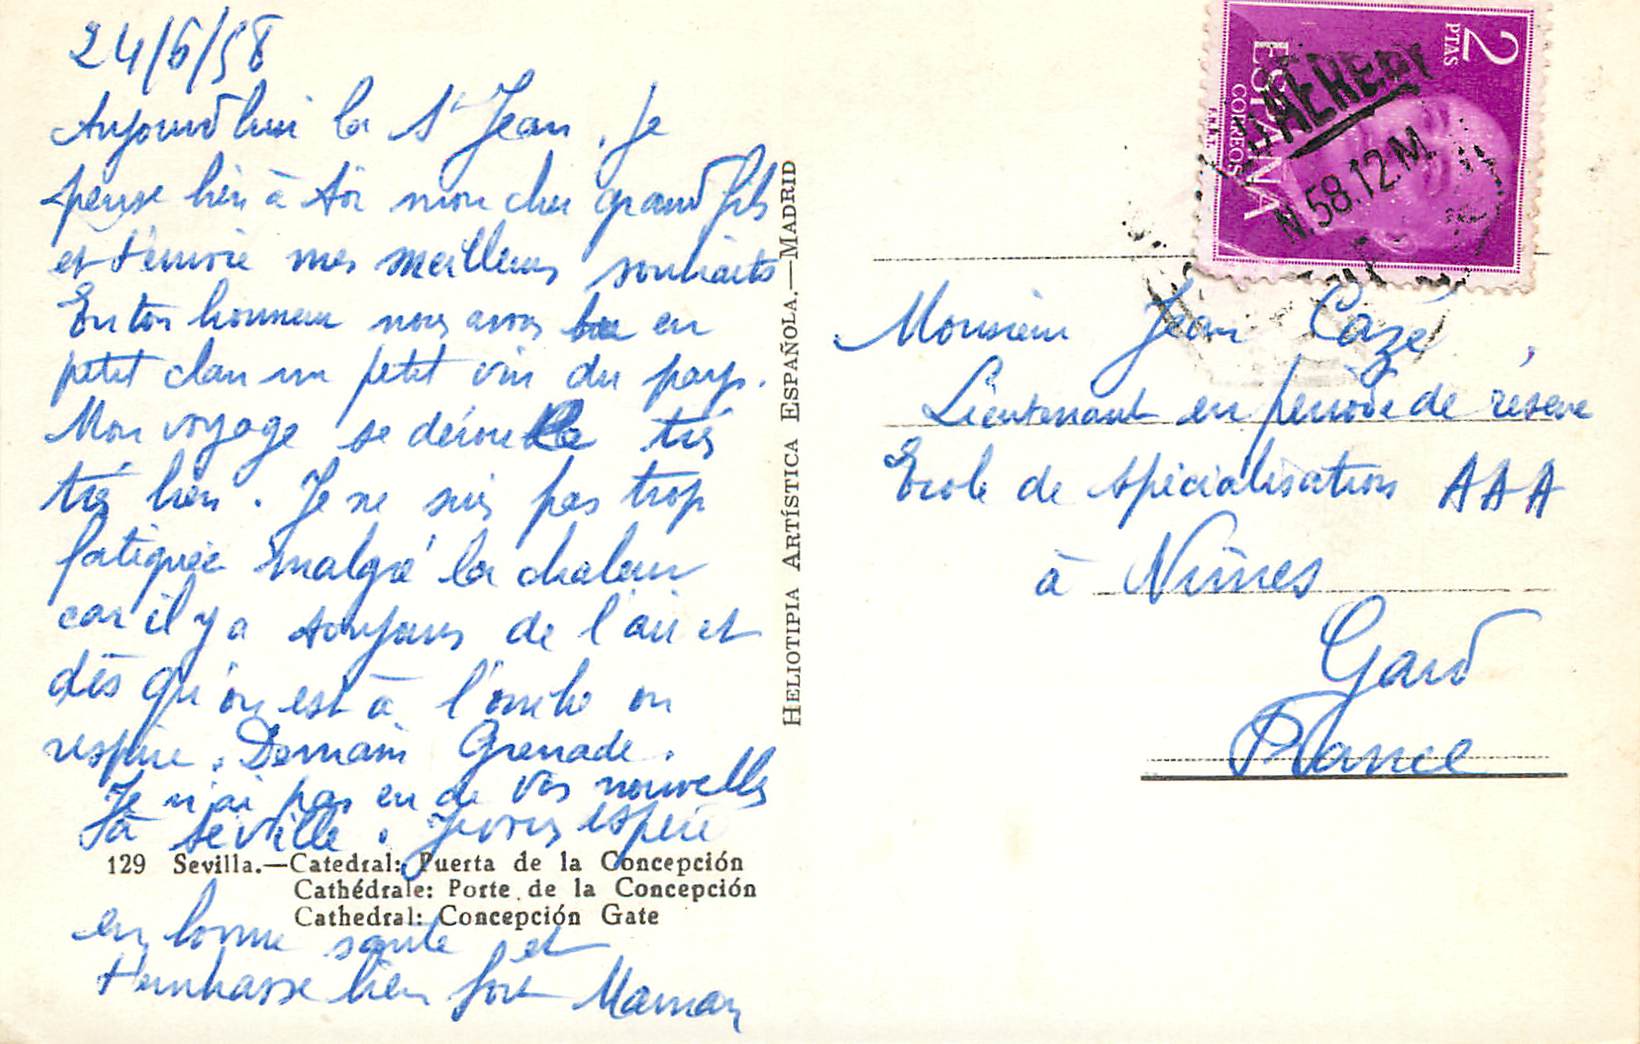 24/6/58
Aujourd'hui la St Jean, je
pense bien à toi mon cher grand fils
et t'envoie mes meilleurs souhaits
En ton honneur nous avons bu en
petit clan un petit vin du pays.
Mon voyage se déroule très
très bien. Je ne suis pas trop
fatiguée malgré la chaleur
car il y a toujours de l'air et
dès qu'on est à l'ombre on
respire. Demain Grenade.
Je n'ai pas eu de vos nouvelles
à Séville. Je vous espère
129 Sevilla.—Catedral: Puerta de la Concepción
Cathédrale: Porte de la Concepción
Cathedral: Concepción Gate
en bonne santé et
t'embrasse bien fort Maman
HELIOTIPIA ARTÍSTICA ESPAÑOLA.—MADRID
2
PTAS
ESPAÑA
CORREOS
F.N.M.T.
N.58.12M
Monsieur Jean Cazé,
Lieutenant en période de réserve
Ecole de spécialisation AAA
à Nîmes
Gard
France